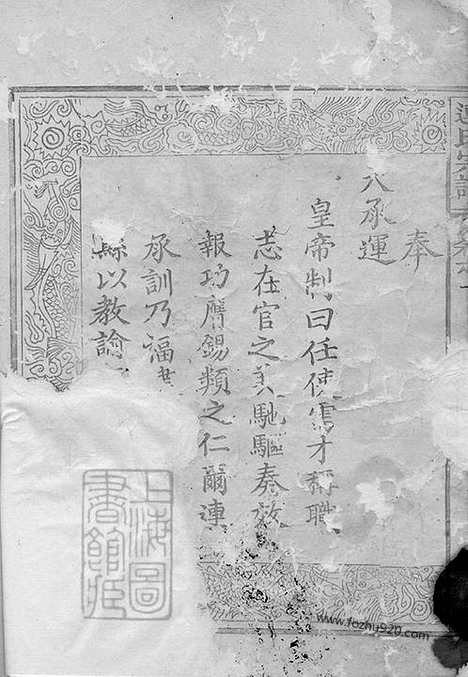 氏宗譜
奉
天承運
皇帝制曰任使需才稱職
志在官之美馳驅奏效
報功膺錫類之仁爾連
承訓乃福
縣以教諭
上海圖
書館藏
www.fozhu920.com